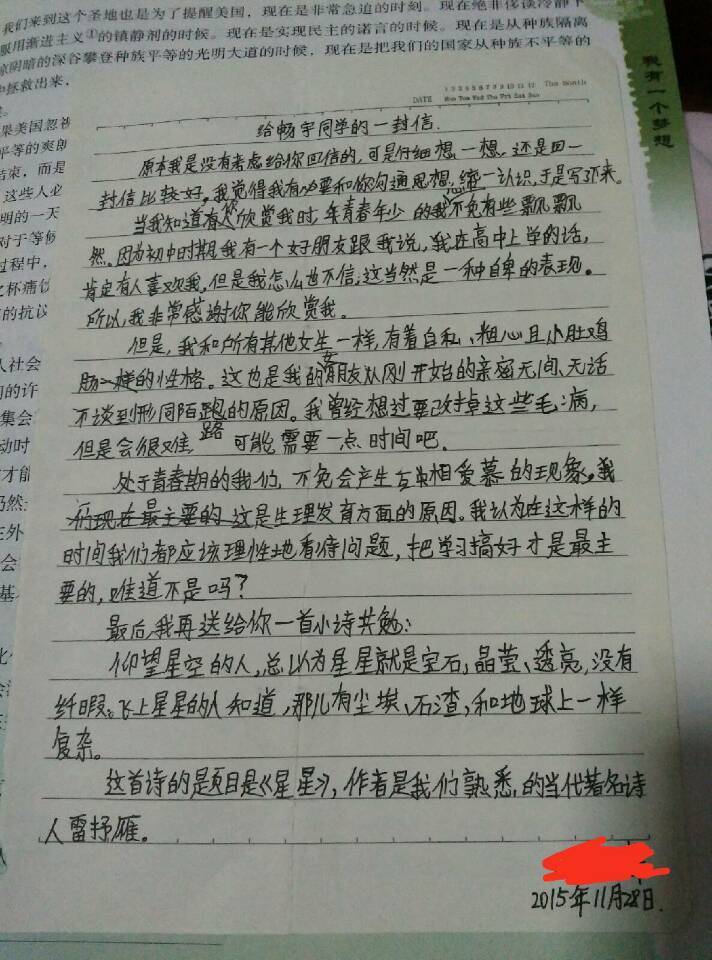 我们来到这个圣地也是为了提醒美国，现在是非常急迫的时刻。现在绝非侈谈冷静下
服用渐进主义①的镇静剂的时候。现在是实现民主的诺言的时候。现在是从种族隔离
阴暗的深谷攀登种族平等的光明大道的时候，现在是把我们的国家从种族不平等的
中拯救出来，
果美国忽视
平等的爽朗
结束，而是
这些人必
明的一天
对于等候
过程中，
之杯痛饮
的抗议
人社会
们的许
集会
动时
才能
仍然
在外
会
基
我有一个梦想
DATE
1 2 3 4 5 6 7 8 9 10 11 12 The Month
Mon Tue Wed Thu Fri Sat Sun
给畅宇同学的一封信.
原本我是没有考虑给你回信的,可是仔细想一想,还是回一
封信比较好,我觉得我有必要和你沟通思想,统一认识,于是写下来。
当我知道有人欣赏我时,年青年少的我不免有些飘飘
然。因为初中时期,我有一个好朋友跟我说,我在高中上学的话,
肯定有人喜欢我,但是我怎么也不信,这当然是一种自卑的表现。
所以,我非常感谢你能欣赏我。
但是,我和所有其他女生一样,有着自私、粗心且小肚鸡
肠一样的性格。这也是我的女朋友从刚开始的亲密无间、无话
不谈到形同陌路的原因。我曾经想过要改掉这些毛病,
但是会很难,可能需要一点时间吧.
处于青春期的我们,不免会产生互相爱慕的现象。我
们现在最主要的 这是生理发育方面的原因。我认为在这样的
时间我们都应该理性地看待问题,把学习搞好才是最主
要的,难道不是吗?
最后,我再送给你一首小诗共勉:
仰望星空的人,总以为星星就是宝石,晶莹、透亮,没有
纤暇。飞上星星的人知道,那儿有尘埃、石渣,和地球上一样
复杂。
这首诗的是题目是《星星》,作者是我们熟悉的当代著名诗
人雷抒雁。
2015年11月28日.